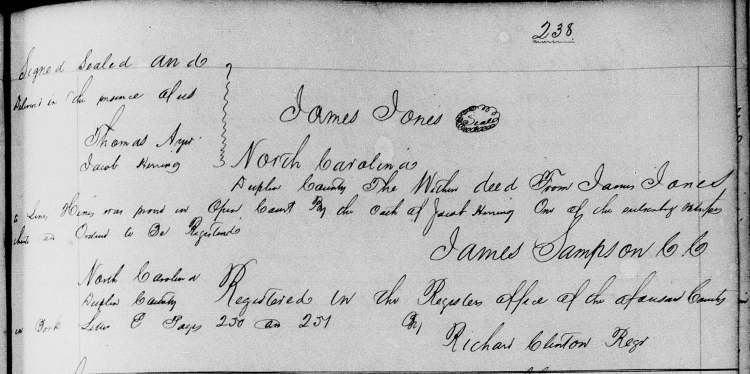 238
Signed Sealed and
Delivered in the presence of us
Thomas
Jacob Herring
James Jones Seal
North Carolina
Duplin County The Within deed From James Jones
to Hines was proved in Open Court By the Oath of Jacob Herring One of the
and Ordered to Be Registered
James Sampson C.C
North Carolina
Duplin County Registered in the Registers office of the aforesaid County
in Book Letter E Pages 250 an 251 By
Richard Clinton Regr